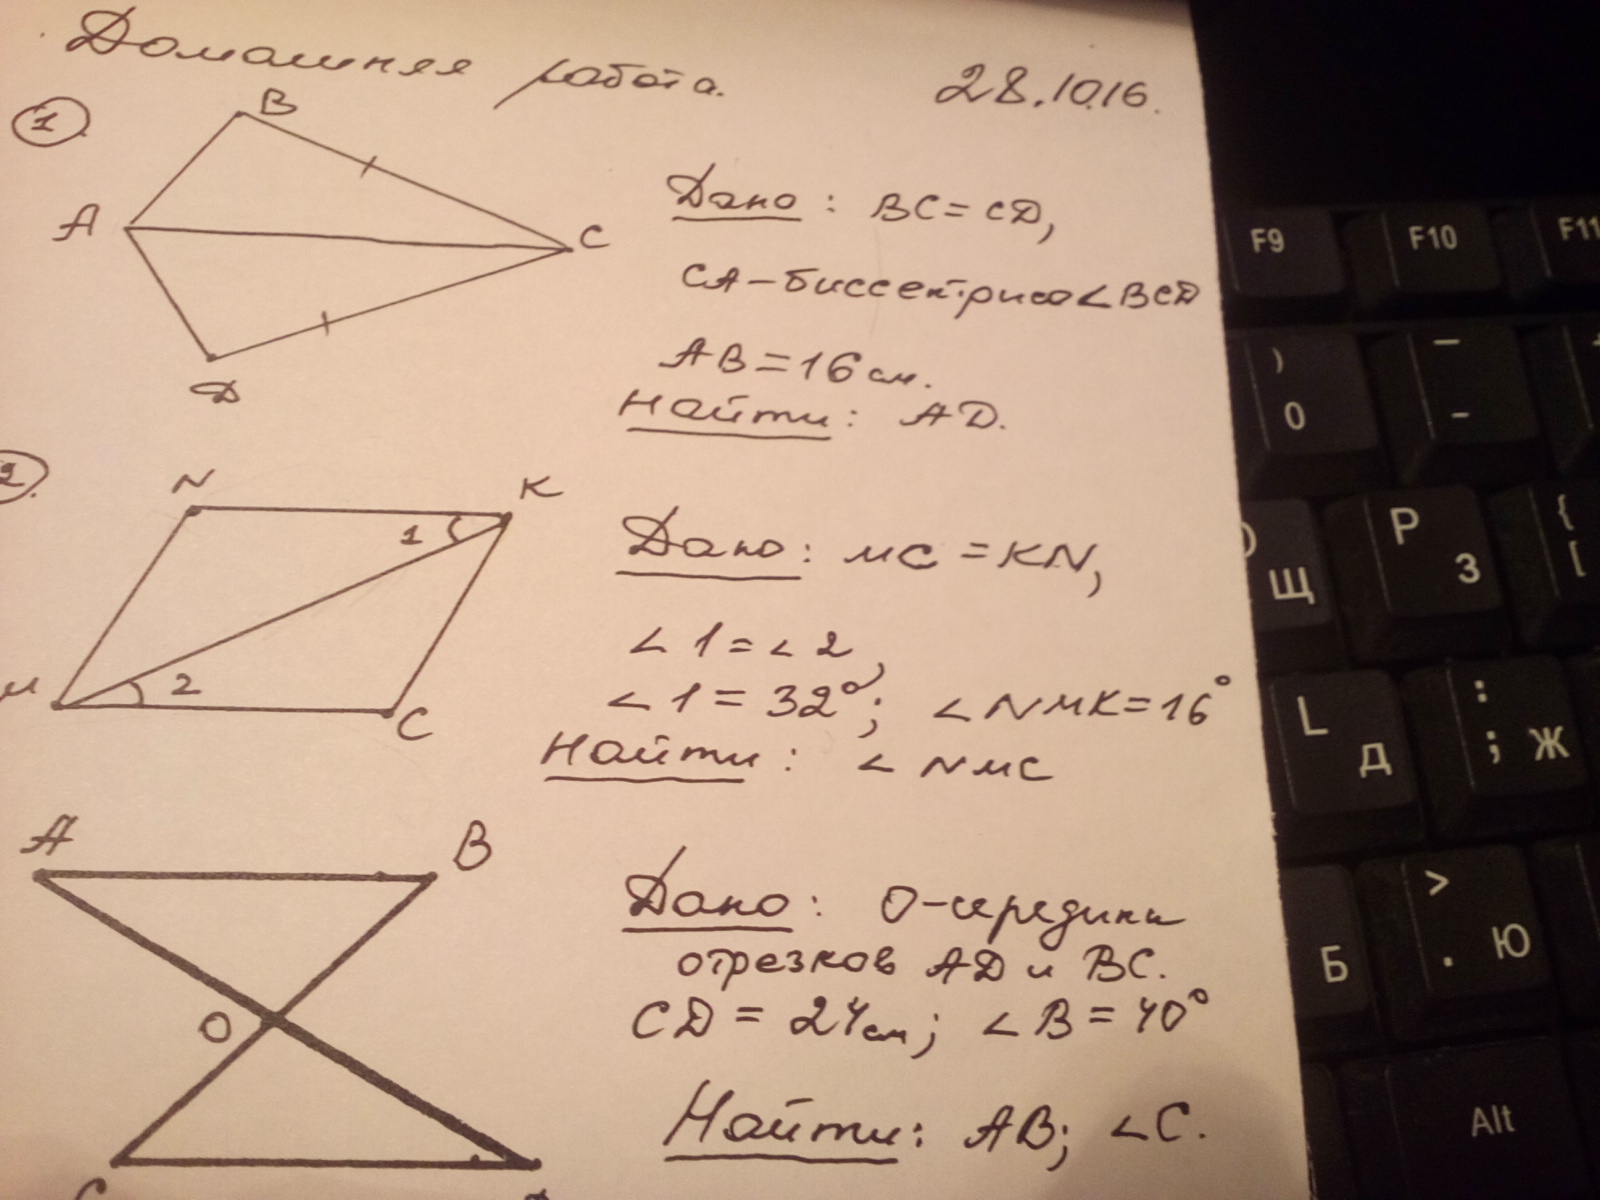 Домашняя работа. 28.10.16.
1.
B
A
C
D
Дано: BC = CD,
CA – биссектриса ∠BCD
AB = 16 см.
Найти: AD.
2.
N
K
1
2
M
C
Дано: MC = KN,
∠1 = ∠2,
∠1 = 32°; ∠NMK = 16°
Найти: ∠NMC
A
B
O
C
Дано: O – середина
отрезков AD и BC.
CD = 24 см; ∠B = 40°
Найти: AB; ∠C.
F9 F10 F11
) 0
— -
Щ
P З
{ [
L Д
: ; Ж
Б
> . Ю
Alt